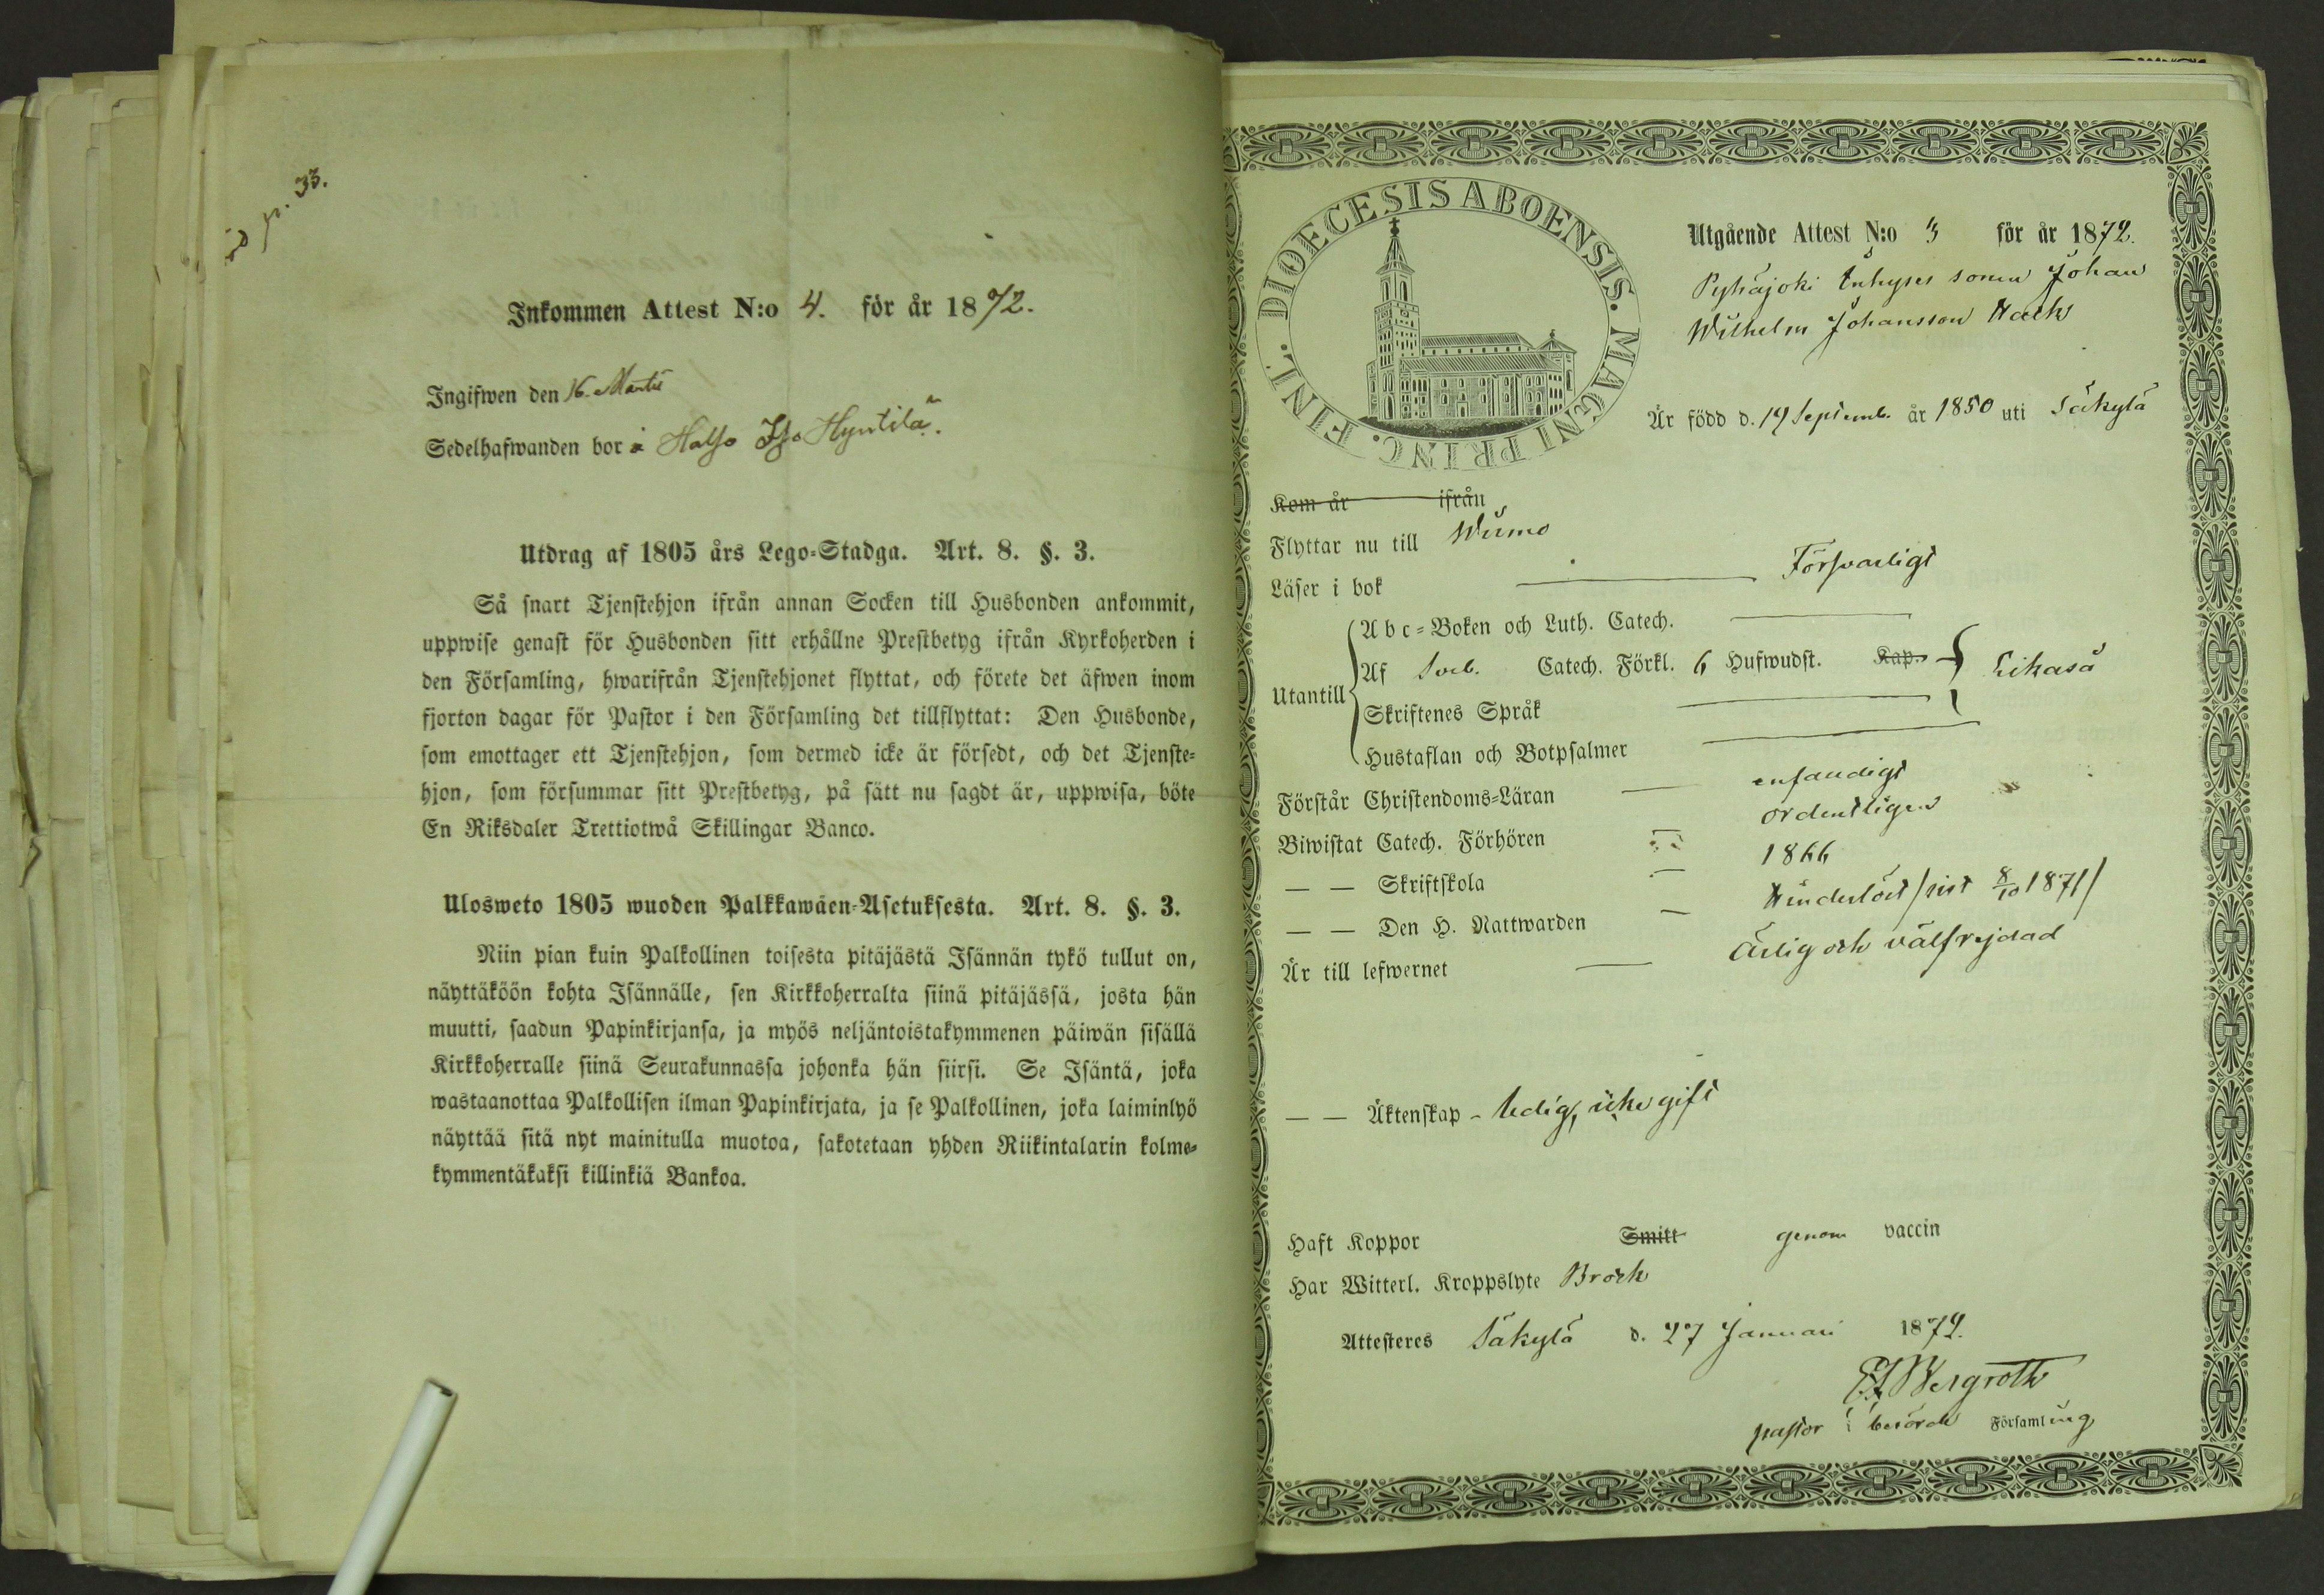 p. 33.
Inkommen Attest N:o 4. för år 1872.
Ingifwen den 16. Martii
Sedelhafwanden bor i Halso Iso Hyntilä.
Utdrag af 1805 års Lego-Stadga. Art. 8. §. 3.
Så snart Tjenstehjon ifrån annan Socken till Husbonden ankommit,
uppwise genast för Husbonden sitt erhållne Prestbetyg ifrån Kyrkoherden i
den Församling, hwarifrån Tjenstehjonet flyttat, och förete det äfwen inom
fjorton dagar för Pastor i den Församling det tillflyttat: Den Husbonde,
som emottager ett Tjenstehjon, som dermed icke är försedt, och det Tjenste-
hjon, som försummar sitt Prestbetyg, på sätt nu sagdt är, uppwisa, böte
En Riksdaler Trettiotwå Skillingar Banco.
Ulosweto 1805 wuoden Palkkawäen-Asetuksesta. Art. 8. §. 3.
Niin pian kuin Palkollinen toisesta pitäjästä Isännän tykö tullut on,
näyttäköön kohta Isännälle, sen Kirkkoherralta siinä pitäjässä, josta hän
muutti, saadun Papinkirjansa, ja myös neljäntoistakymmenen päiwän sisällä
Kirkkoherralle siinä Seurakunnassa johonka hän siirsi. Se Isäntä, joka
wastaanottaa Palkollisen ilman Papinkirjata, ja se Palkollinen, joka laiminlyö
näyttää sitä nyt mainitulla muotoa, sakotetaan yhden Riikintalarin kolme-
kymmentäkaksi killinkiä Bankoa.
DIOECESIS ABOENSIS. MAGNI PRINC. FINL.
Utgående Attest N:o 3 för år 1872.
Pyhäjoki Inhyses sonen Johan
Wilhelm Johansson Hack
Är född d. 19 Septemb. år 1850 uti Säkylä
Kom år ifrån
Flyttar nu till Wirmo
Läser i bok Försvarligt
Utantill
Abc-Boken och Luth. Catech.
Af Sveb. Catech. Förkl. 6 Hufwudst. Kap. Likaså
Skriftenes Språk
Hustaflan och Botpsalmer
Förstår Christendoms-Läran enfaldigt
Biwistat Catech. Förhören ordentligen
— — Skriftskola 1866
— — Den H. Nattwarden Hinderlöst /sist 8/10 1871/
Är till lefwernet Ärlig och välfrejdad
— — Äktenskap - Ledig, icke gift
Haft Koppor Smitt genom vaccin
Har Witterl. Kroppslyte Brock
Attesteres Säkylä d. 27 Januari 1872.
Bergroth
pastor i berörde Församling